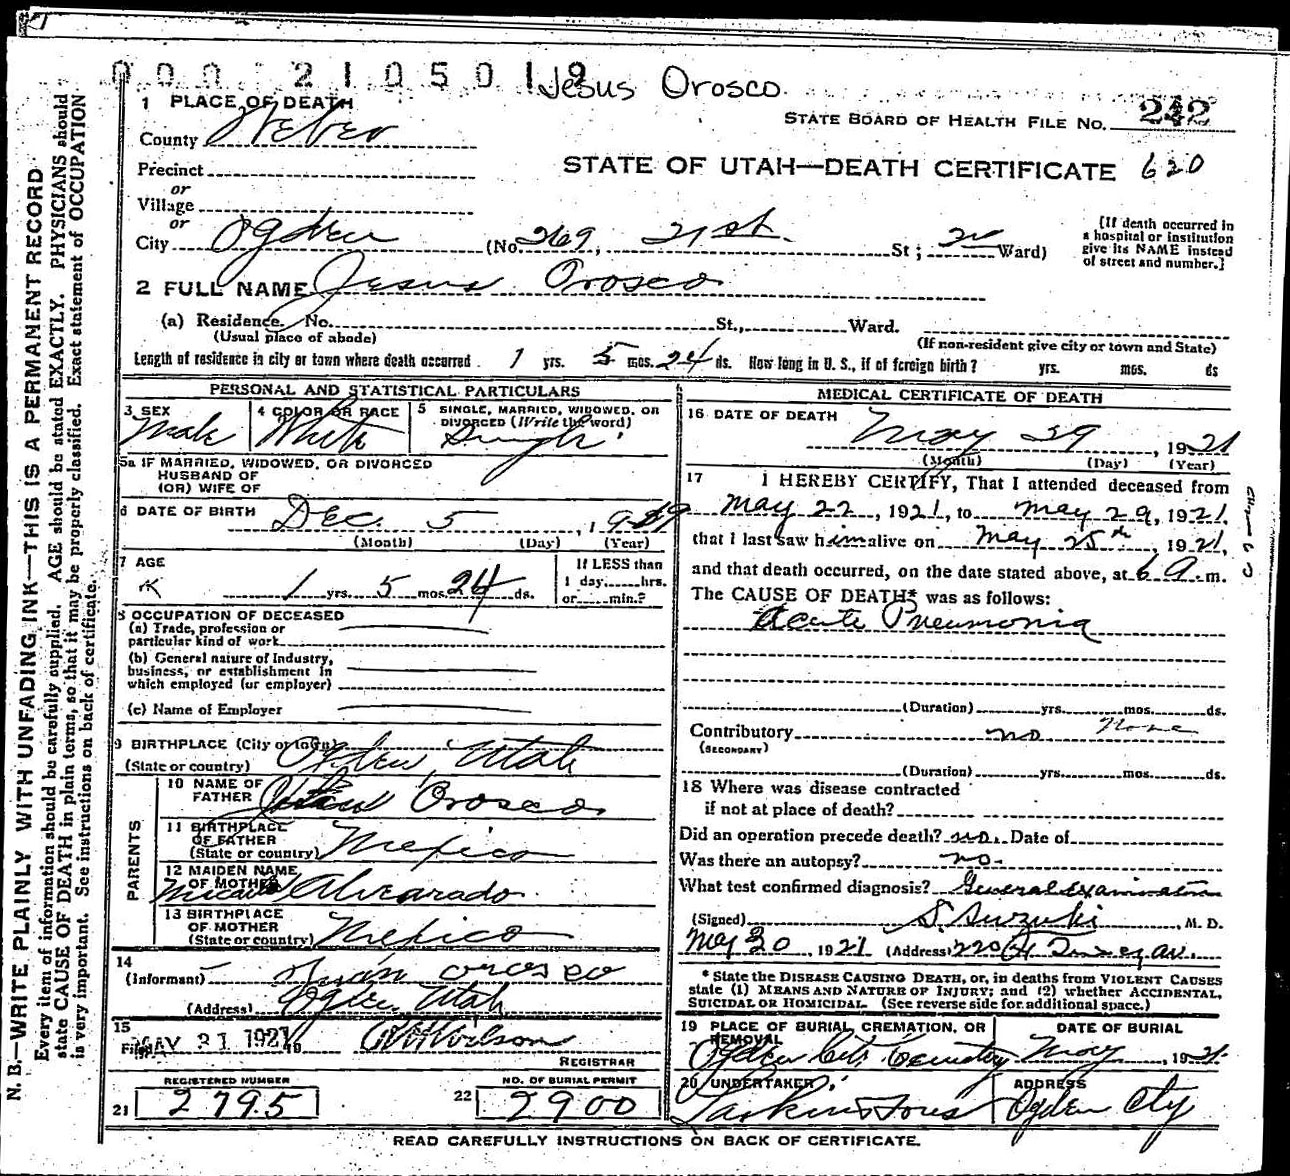 000 2105019 Jesus Orosco
1 PLACE OF DEATH
County Weber
STATE BOARD OF HEALTH FILE NO. 242
Precinct
STATE OF UTAH—DEATH CERTIFICATE 620
or
Village
or
City Ogden (No 269, 21st. St; 2 Ward)
[If death occurred in
a hospital or institution
give its NAME instead
of street and number.]
2 FULL NAME Jesus Orosco
(a) Residence. No. St., Ward.
(Usual place of abode) (If non-resident give city or town and State)
Length of residence in city or town where death occurred 1 yrs. 5 mos. 24 ds. How long in U. S., if of foreign birth? yrs. mos. ds
PERSONAL AND STATISTICAL PARTICULARS
3 SEX
Male
4 COLOR OR RACE
White
5 SINGLE, MARRIED, WIDOWED, OR
DIVORCED (Write the word)
Single
5a IF MARRIED, WIDOWED, OR DIVORCED
HUSBAND OF
(OR) WIFE OF
6 DATE OF BIRTH Dec. 5, 19
(Month) (Day) (Year)
7 AGE
1 yrs. 5 mos. 24 ds.
If LESS than
1 day, hrs.
or min.?
8 OCCUPATION OF DECEASED
(a) Trade, profession or
particular kind of work
(b) General nature of Industry,
business, or establishment in
which employed (or employer)
(c) Name of Employer
9 BIRTHPLACE (City or town)
(State or country) Ogden, Utah
PARENTS
10 NAME OF
FATHER Orosco
11 BIRTHPLACE
OF FATHER
(State or country) Mexico
12 MAIDEN NAME
OF MOTHER Alvarado
13 BIRTHPLACE
OF MOTHER
(State or country) Mexico
14
(Informant) Juan orosco
(Address) Ogden Utah
15
Filed MAY 31 1921 19 Wilson
REGISTRAR
REGISTERED NUMBER
21 2795
NO. OF BURIAL PERMIT
22 2900
MEDICAL CERTIFICATE OF DEATH
16 DATE OF DEATH
May 29, 1921
(Month) (Day) (Year)
17 I HEREBY CERTIFY, That I attended deceased from
May 22, 1921, to May 29, 1921.
that I last saw him alive on May 25th, 1921,
and that death occurred, on the date stated above, at 6 a.m.
The CAUSE OF DEATH* was as follows:
Acute Pneumonia
(Duration) yrs. mos. ds.
Contributory no None
(SECONDARY)
(Duration) yrs. mos. ds.
18 Where was disease contracted
if not at place of death?
Did an operation precede death? no. Date of
Was there an autopsy? no.
What test confirmed diagnosis? General Examination
(Signed) S. Suzuki, M. D.
May 30 1921 (Address) 220 av.
* State the DISEASE CAUSING DEATH, or, in deaths from VIOLENT CAUSES
state (1) MEANS AND NATURE OF INJURY; and (2) whether ACCIDENTAL,
SUICIDAL OR HOMICIDAL. (See reverse side for additional space.)
19 PLACE OF BURIAL, CREMATION, OR
REMOVAL
Ogden City Cemetery
DATE OF BURIAL
May, 1921
20 UNDERTAKER
Larkin & Sons
ADDRESS
Ogden City
READ CAREFULLY INSTRUCTIONS ON BACK OF CERTIFICATE.
N. B.—WRITE PLAINLY WITH UNFADING INK—THIS IS A PERMANENT RECORD
Every item of information should be carefully supplied. AGE should be stated EXACTLY. PHYSICIANS should
state CAUSE OF DEATH in plain terms, so that it may be properly classified. Exact statement of OCCUPATION
is very important. See instructions on back of certificate.